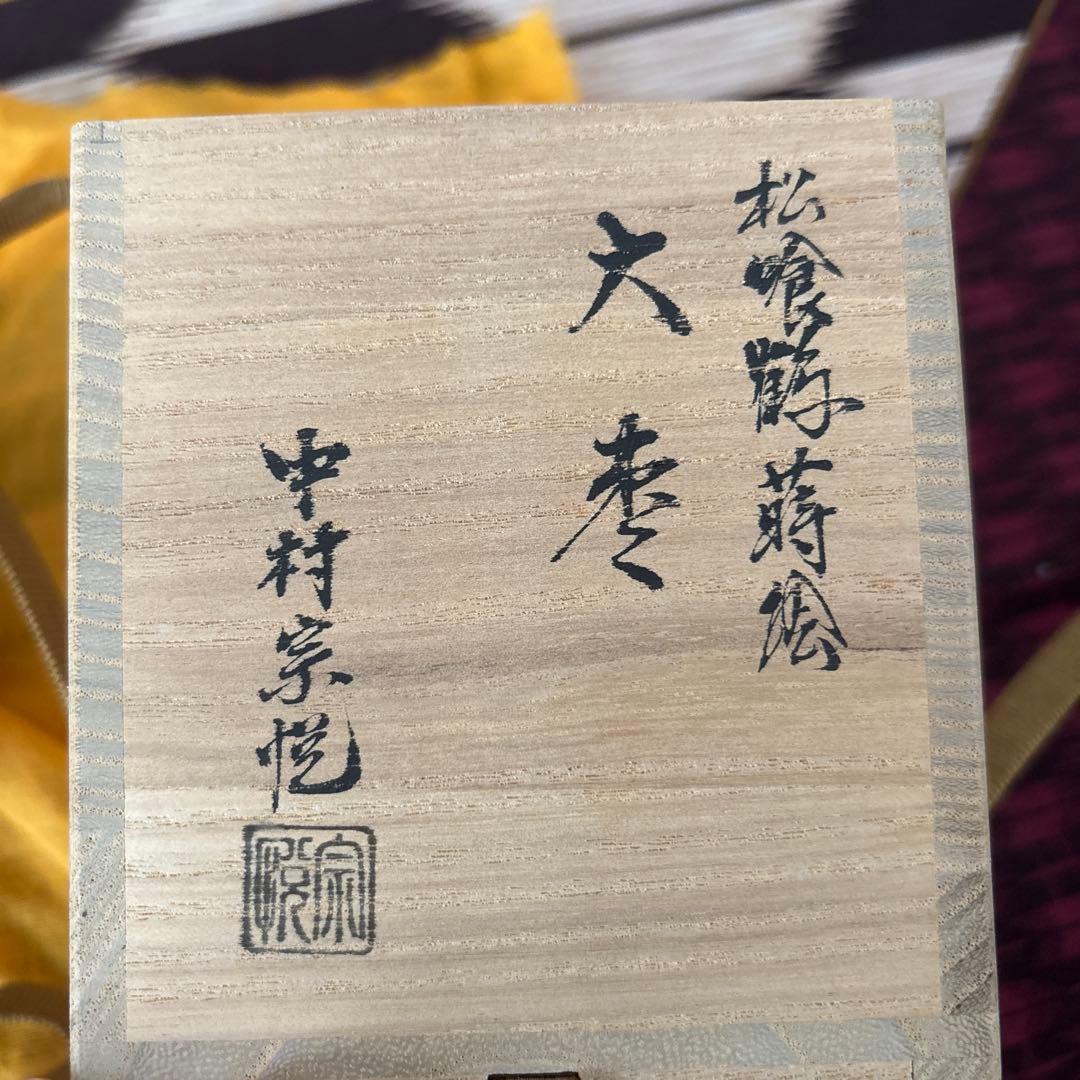 松喰鶴蒔絵
大棗
中村宗悦
宗悦